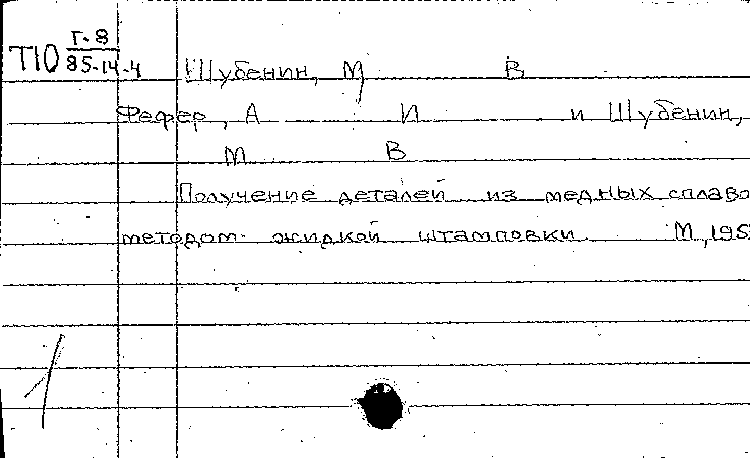 Т10 Г-8
85-14-4
Шубенин, М В
Фефер, А И и Шубенин,
М В
Получение деталей из медных сплаво
методом жидкой штамповки. М, 195
1